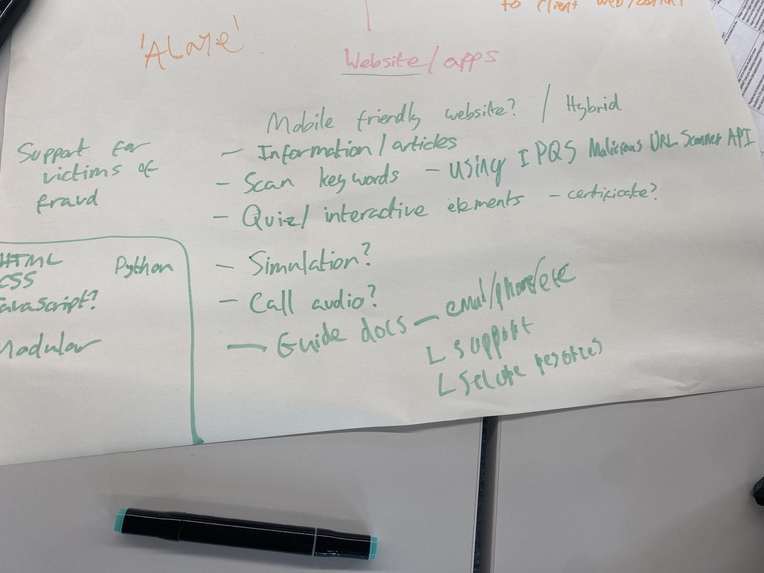 to client
'Alare'
Website/apps
Mobile friendly website? / Hybrid
- Information/articles
- Scan keywords - using IPQS Malicious URL Scanner API
- Quiz/ interactive elements - certificate?
- Simulation?
- Call audio?
- Guide docs - email/phone/etc
L support
L secure
Support for
victims of
fraud
HTML Python
CSS
Javascript?
Modular